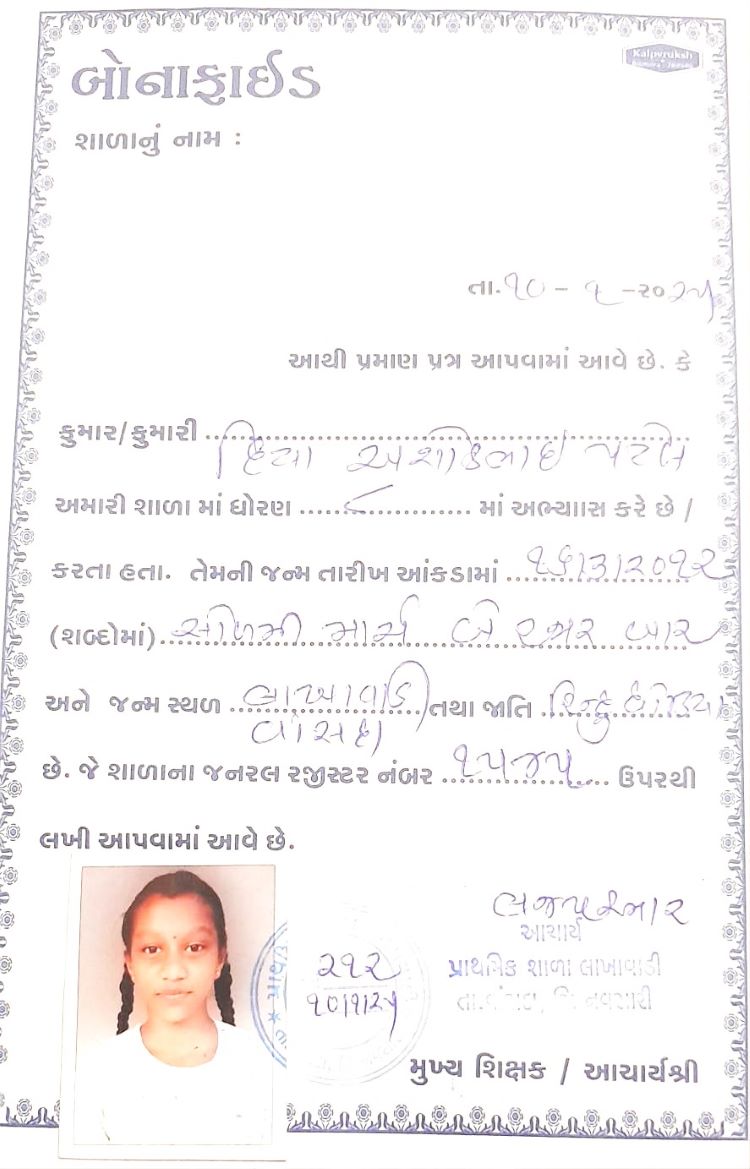 બોનાફાઈડ
Kalpvruksh
શાળાનું નામ :
તા.૧૦ - ૧ -૨૦૨૫
આથી પ્રમાણ પત્ર આપવામાં આવે છે. કે
કુમાર/કુમારી દિયા અશોકભાઈ પટેલ
અમારી શાળા માં ધોરણ ૮ માં અભ્યાાસ કરે છે /
કરતા હતા. તેમની જન્મ તારીખ આંકડામાં ૧૬/૩/૨૦૧૨
(શબ્દોમાં) સોળમી માર્ચ બે હજાર બાર
અને જન્મ સ્થળ લાખાવાડી તથા જાતિ હિન્દુ ધોડિયા
વાંસદા
છે. જે શાળાના જનરલ રજીસ્ટર નંબર ૧૫૪૫ ઉપરથી
લખી આપવામાં આવે છે.
આચાર્ય
૨૧૨
પ્રાથમિક શાળા લાખાવાડી
૧૦/૧/૨૫
તા.વાંસદા, જિ.નવસારી
મુખ્ય શિક્ષક / આચાર્યશ્રી